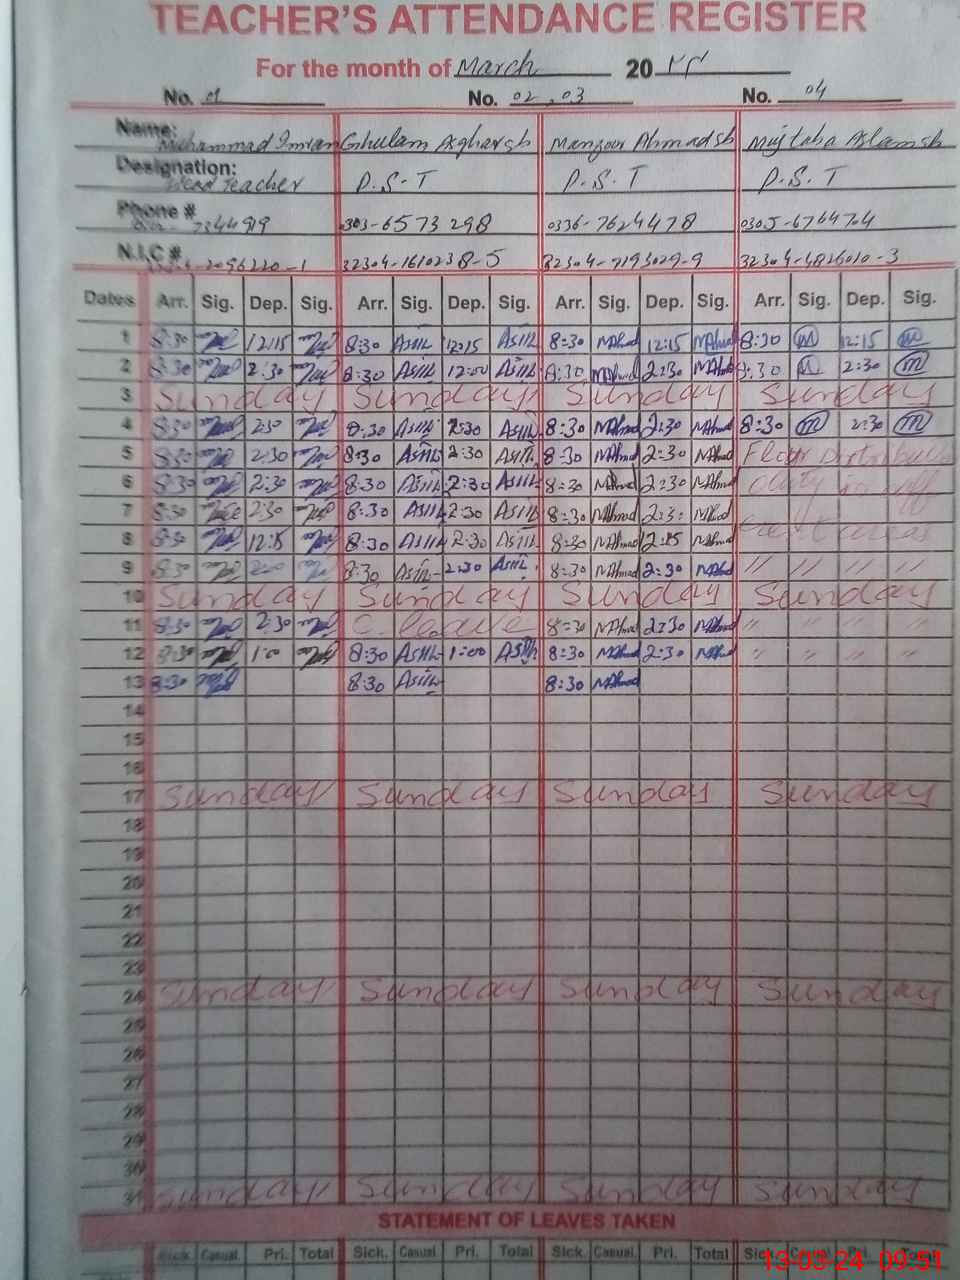 TEACHER'S ATTENDANCE REGISTER
For the month of March 20 ۲۴
No. 01 No. 02,03 No. 04
Name: Muhammad Imran Ghulam Asghar sb Manzoor Ahmad sb Mujtaba Aslam sb
Designation: Head Teacher P.S.T P.S.T P.S.T
Phone # 7344919 0303-6573298 0336-7624478 0305-6764704
N.I.C # 2096220-1 32304-1610238-5 32304-7193029-9 32304-4826010-3
Dates Arr. Sig. Dep. Sig. Arr. Sig. Dep. Sig. Arr. Sig. Dep. Sig. Arr. Sig. Dep. Sig.
1 8:30 12:15 8:30 12:15 8:30 MAhmad 12:15 MAhmad 8:30 m 12:15 m
2 8:30 2:30 8:30 12:00 8:30 MAhmad 2:30 MAhmad 8:30 m 2:30 m
3 Sunday Sunday Sunday Sunday
4 8:30 2:30 8:30 2:30 8:30 MAhmad 2:30 MAhmad 8:30 m 2:30 m
5 8:30 2:30 8:30 2:30 8:30 MAhmad 2:30 MAhmad
6 8:30 2:30 8:30 2:30 8:30 MAhmad 2:30 MAhmad
7 8:30 2:30 8:30 2:30 8:30 MAhmad 2:3: MAhmad
8 8:30 12:15 8:30 2:30 8:30 MAhmad 12:15 MAhmad
9 8:30 8:30 2:30 8:30 MAhmad 2:30 MAhmad " " " "
10 Sunday Sunday Sunday Sunday
11 8:30 2:30 C. leave 8:30 MAhmad 2:30 MAhmad " " " "
12 8:30 1:00 8:30 1:00 8:30 MAhmad 2:30 MAhmad " " " "
13 8:30 8:30 8:30 MAhmad
14
15
16
17 Sunday Sunday Sunday Sunday
18
19
20
21
22
23
24 Sunday Sunday Sunday Sunday
25
26
27
28
29
30
31 Sunday Sunday Sunday Sunday
STATEMENT OF LEAVES TAKEN
Sick. Casual. Pri. Total Sick. Casual. Pri. Total Sick. Casual. Pri. Total Sick. Casual. Pri. Total
13-03-24 09:51